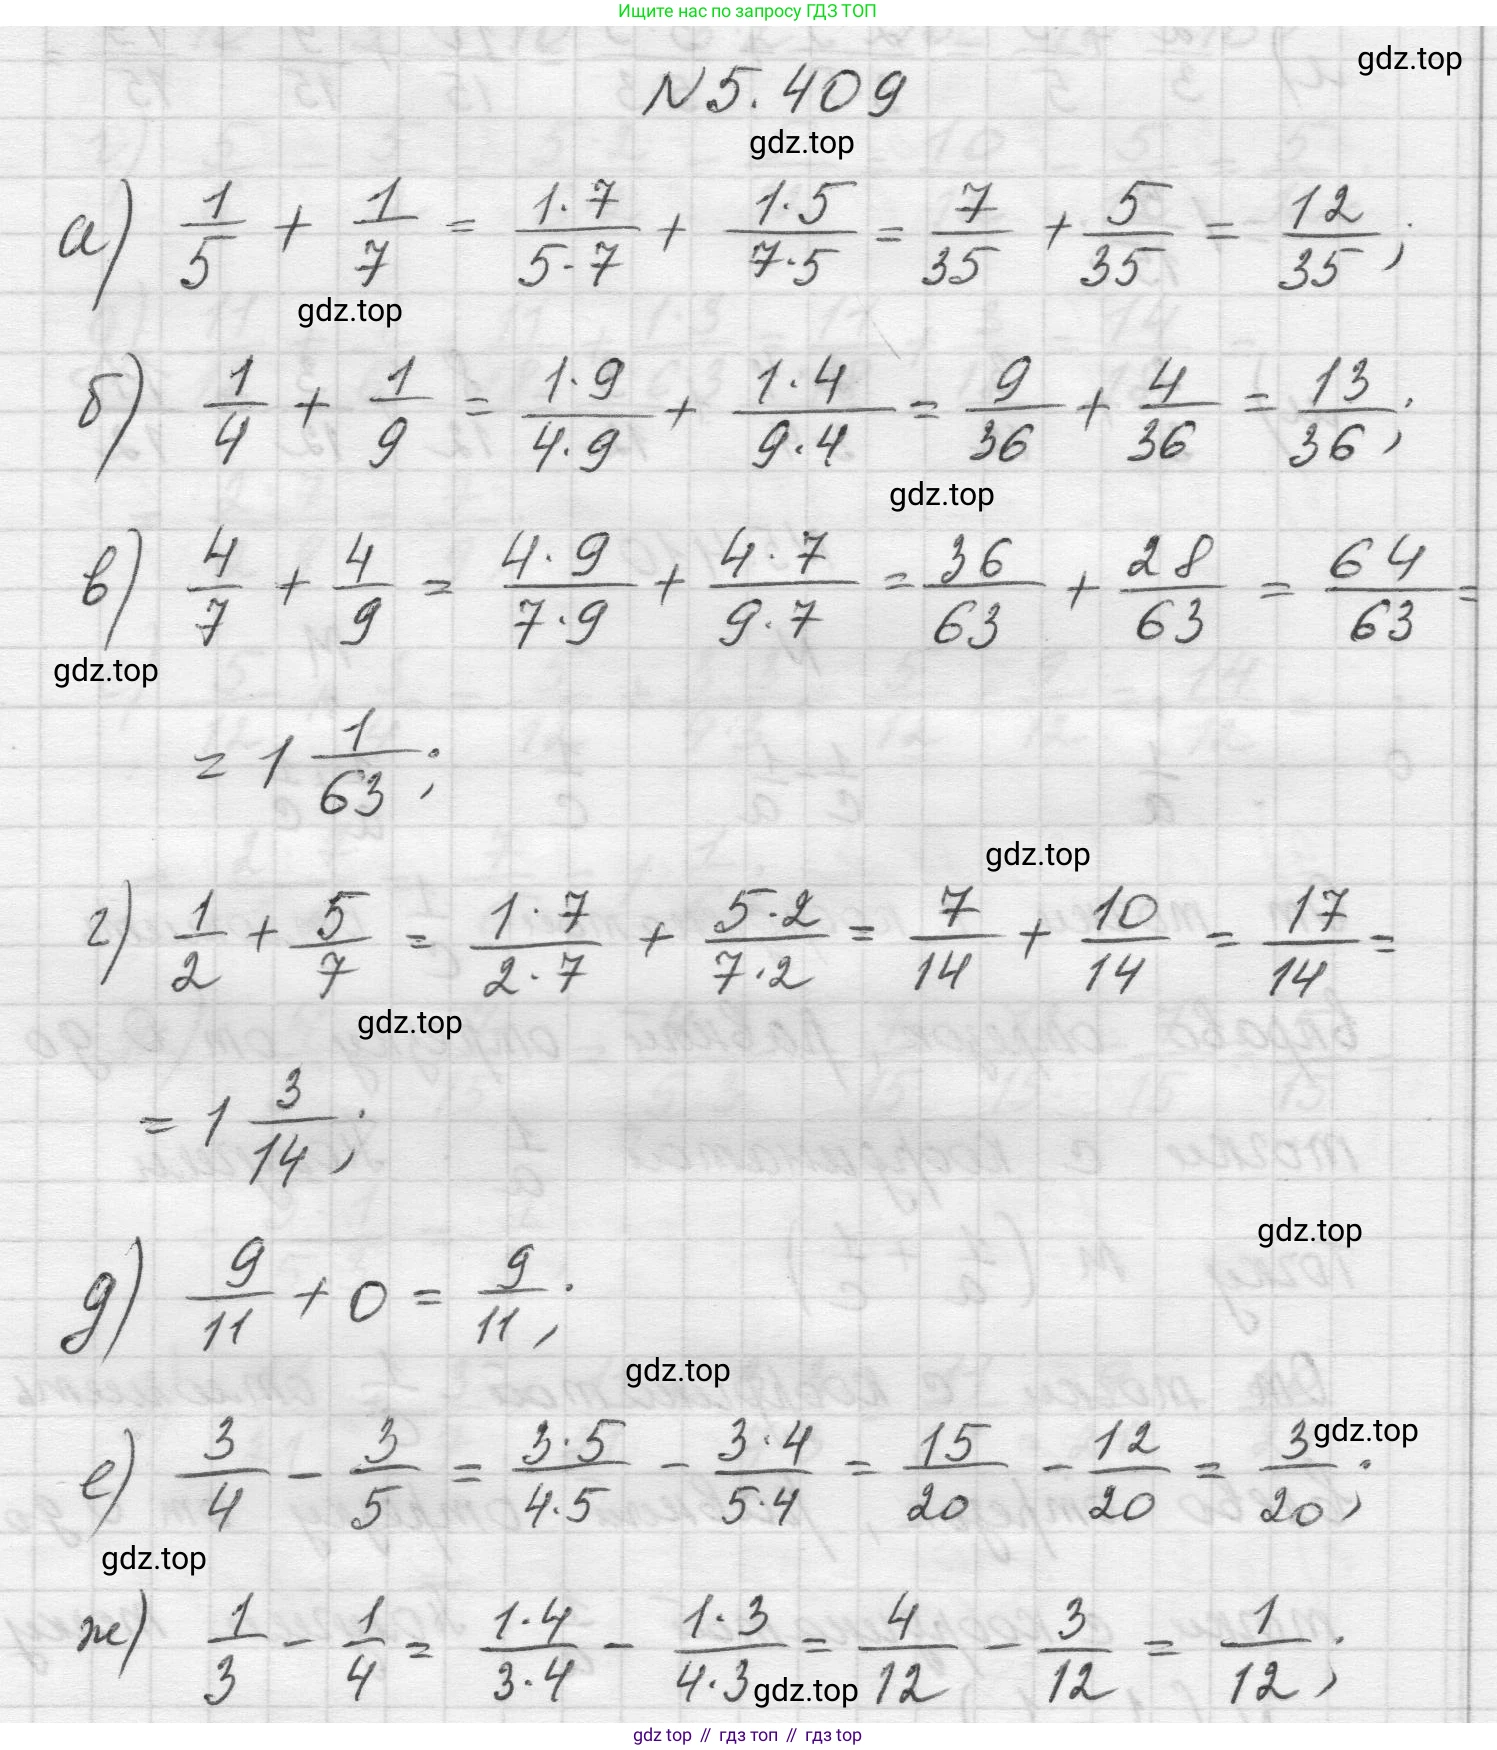 Ищите нас по запросу ГДЗ ТОП
gdz.top
N 5.409
gdz.top
а) 1/5 + 1/7 = 1·7/5·7 + 1·5/7·5 = 7/35 + 5/35 = 12/35;
gdz.top
б) 1/4 + 1/9 = 1·9/4·9 + 1·4/9·4 = 9/36 + 4/36 = 13/36;
gdz.top
в) 4/7 + 4/9 = 4·9/7·9 + 4·7/9·7 = 36/63 + 28/63 = 64/63 =
gdz.top
= 1 1/63;
gdz.top
г) 1/2 + 5/7 = 1·7/2·7 + 5·2/7·2 = 7/14 + 10/14 = 17/14 =
gdz.top
= 1 3/14;
gdz.top
д) 9/11 + 0 = 9/11;
gdz.top
gdz.top
е) 3/4 - 3/5 = 3·5/4·5 - 3·4/5·4 = 15/20 - 12/20 = 3/20;
gdz.top
ж) 1/3 - 1/4 = 1·4/3·4 - 1·3/4·3 = 4/12 - 3/12 = 1/12;
gdz.top
gdz top // гдз топ // gdz top